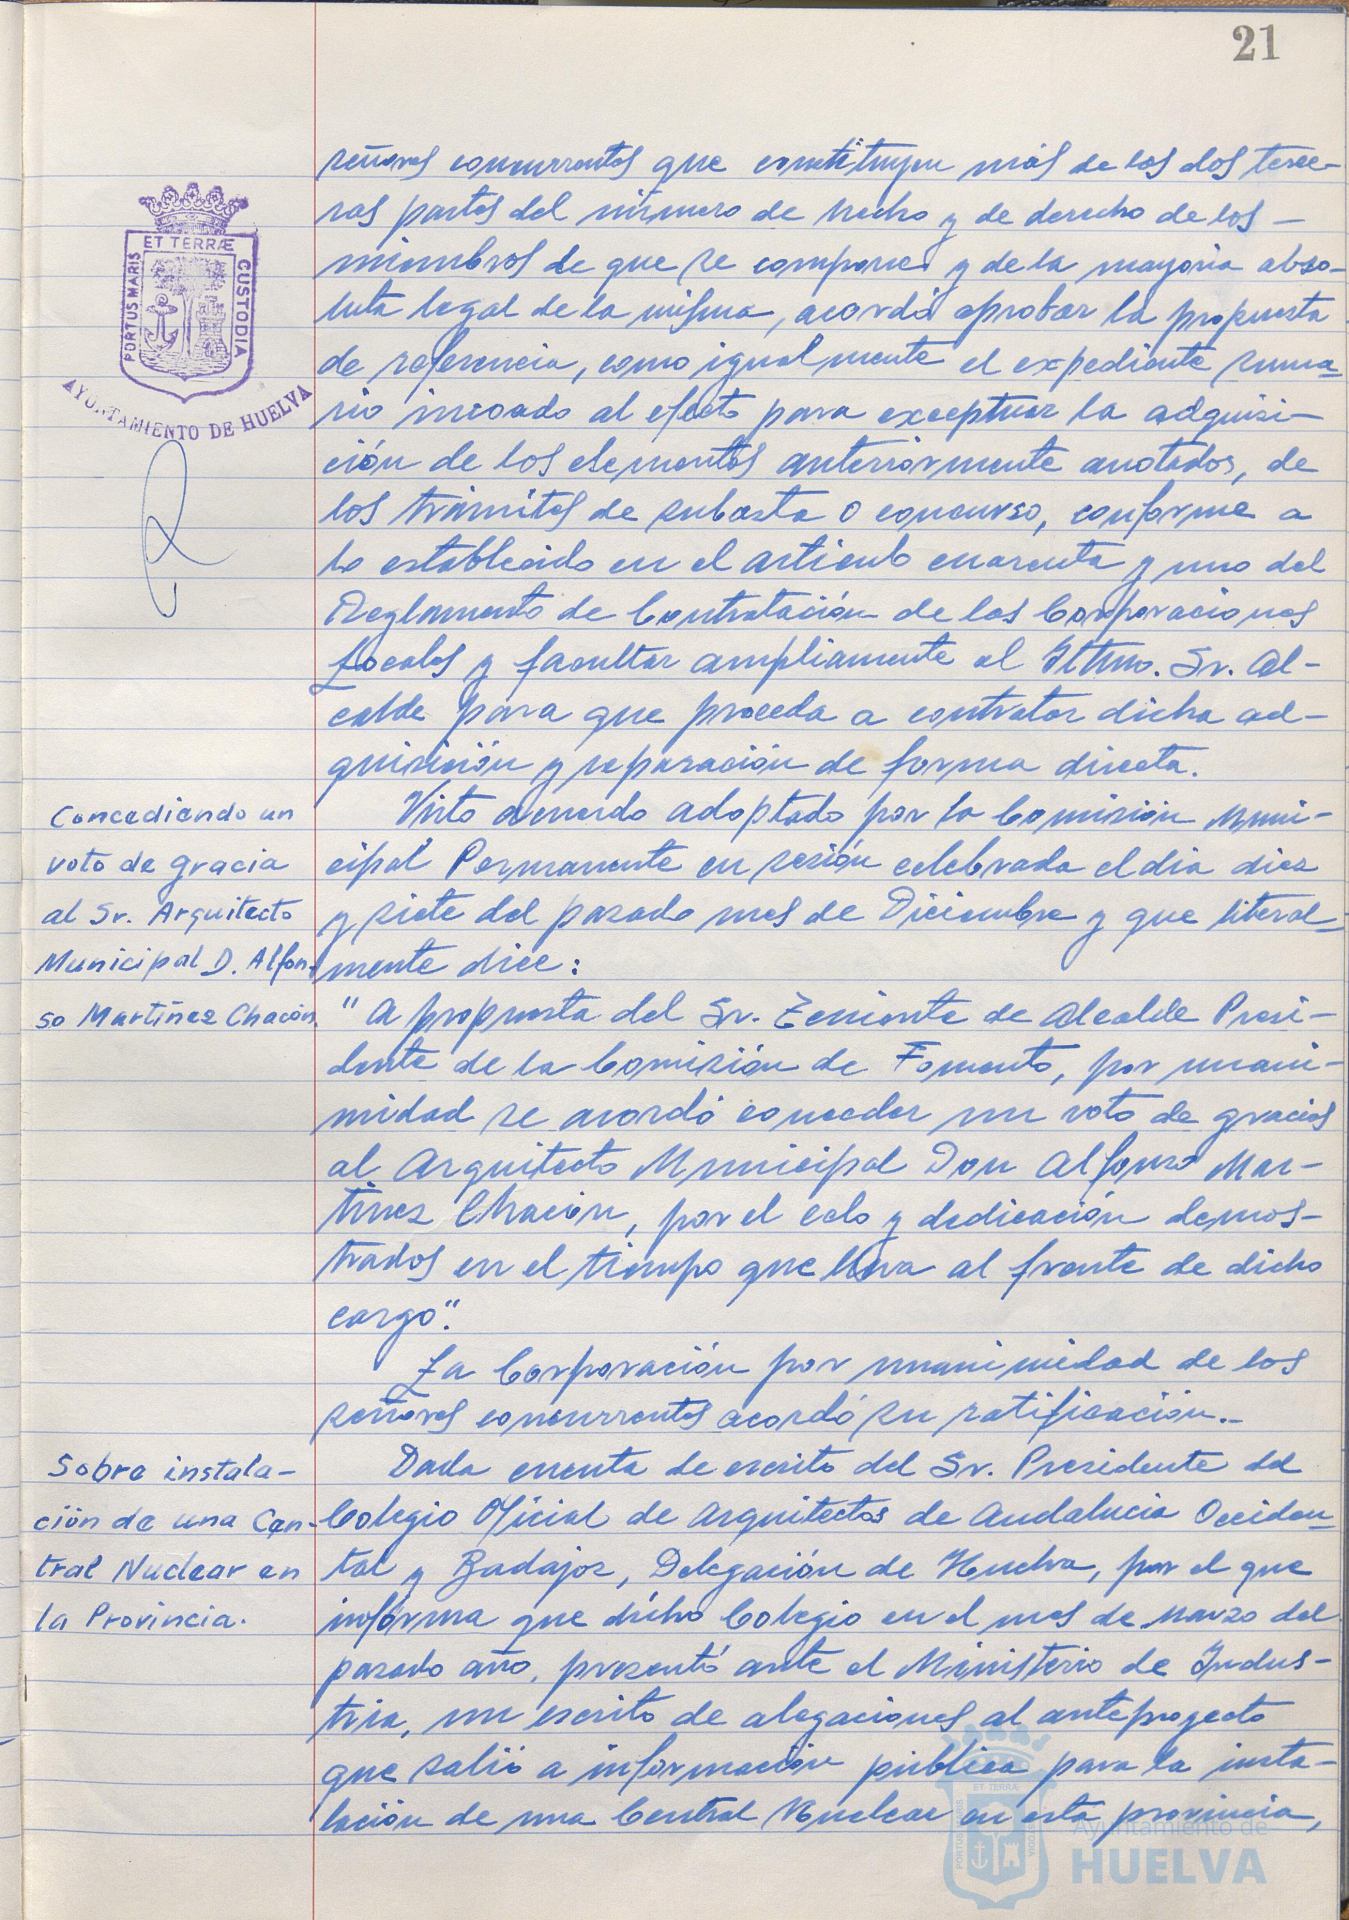 21
señores concurrentes que constituyen más de las dos terce-
ras partes del número de hecho y de derecho de los -
miembros de que se compone y de la mayoría abso-
luta legal de la misma, acordó aprobar la propuesta
de referencia, como igualmente el expediente suma-
rio incoado al efecto para exceptuar la adquisi-
ción de los elementos anteriormente anotados, de
los trámites de subasta o concurso, conforme a
lo establecido en el artículo cuarenta y uno del
Reglamento de Contratación de las Corporaciones
Locales y facultar ampliamente al Iltmo. Sr. Al-
calde para que proceda a contratar dicha ad-
quisición y reparación de forma directa.
Concediendo un
voto de gracia
al Sr. Arquitecto
Municipal D. Alfon-
so Martínez Chacón.
Visto acuerdo adoptado por la Comisión Muni-
cipal Permanente en sesión celebrada el dia diez
y siete del pasado mes de Diciembre y que literal-
mente dice:
"A propuesta del Sr. Teniente de Alcalde Presi-
dente de la Comisión de Fomento, por unani-
midad se acordó conceder un voto de gracias
al Arquitecto Municipal Don Alfonso Mar-
tínez Chacón, por el celo y dedicación demos-
trados en el tiempo que lleva al frente de dicho
cargo".
La Corporación por unanimidad de los
señores concurrentes acordó su ratificación.-
Sobre instala-
ción de una Cen-
tral Nuclear en
la Provincia.
Dada cuenta de escrito del Sr. Presidente del
Colegio Oficial de Arquitectos de Andalucia Occiden-
tal y Badajoz, Delegación de Huelva, por el que
informa que dicho Colegio en el mes de Marzo del
pasado año, presentó ante el Ministerio de Indus-
tria, un escrito de alegaciones al anteproyecto
que salió a información pública para la insta-
lación de una Central Nuclear en esta provincia,
PORTUS MARIS
ET TERRÆ
CUSTODIA
AYUNTAMIENTO DE HUELVA
Ayuntamiento de
HUELVA